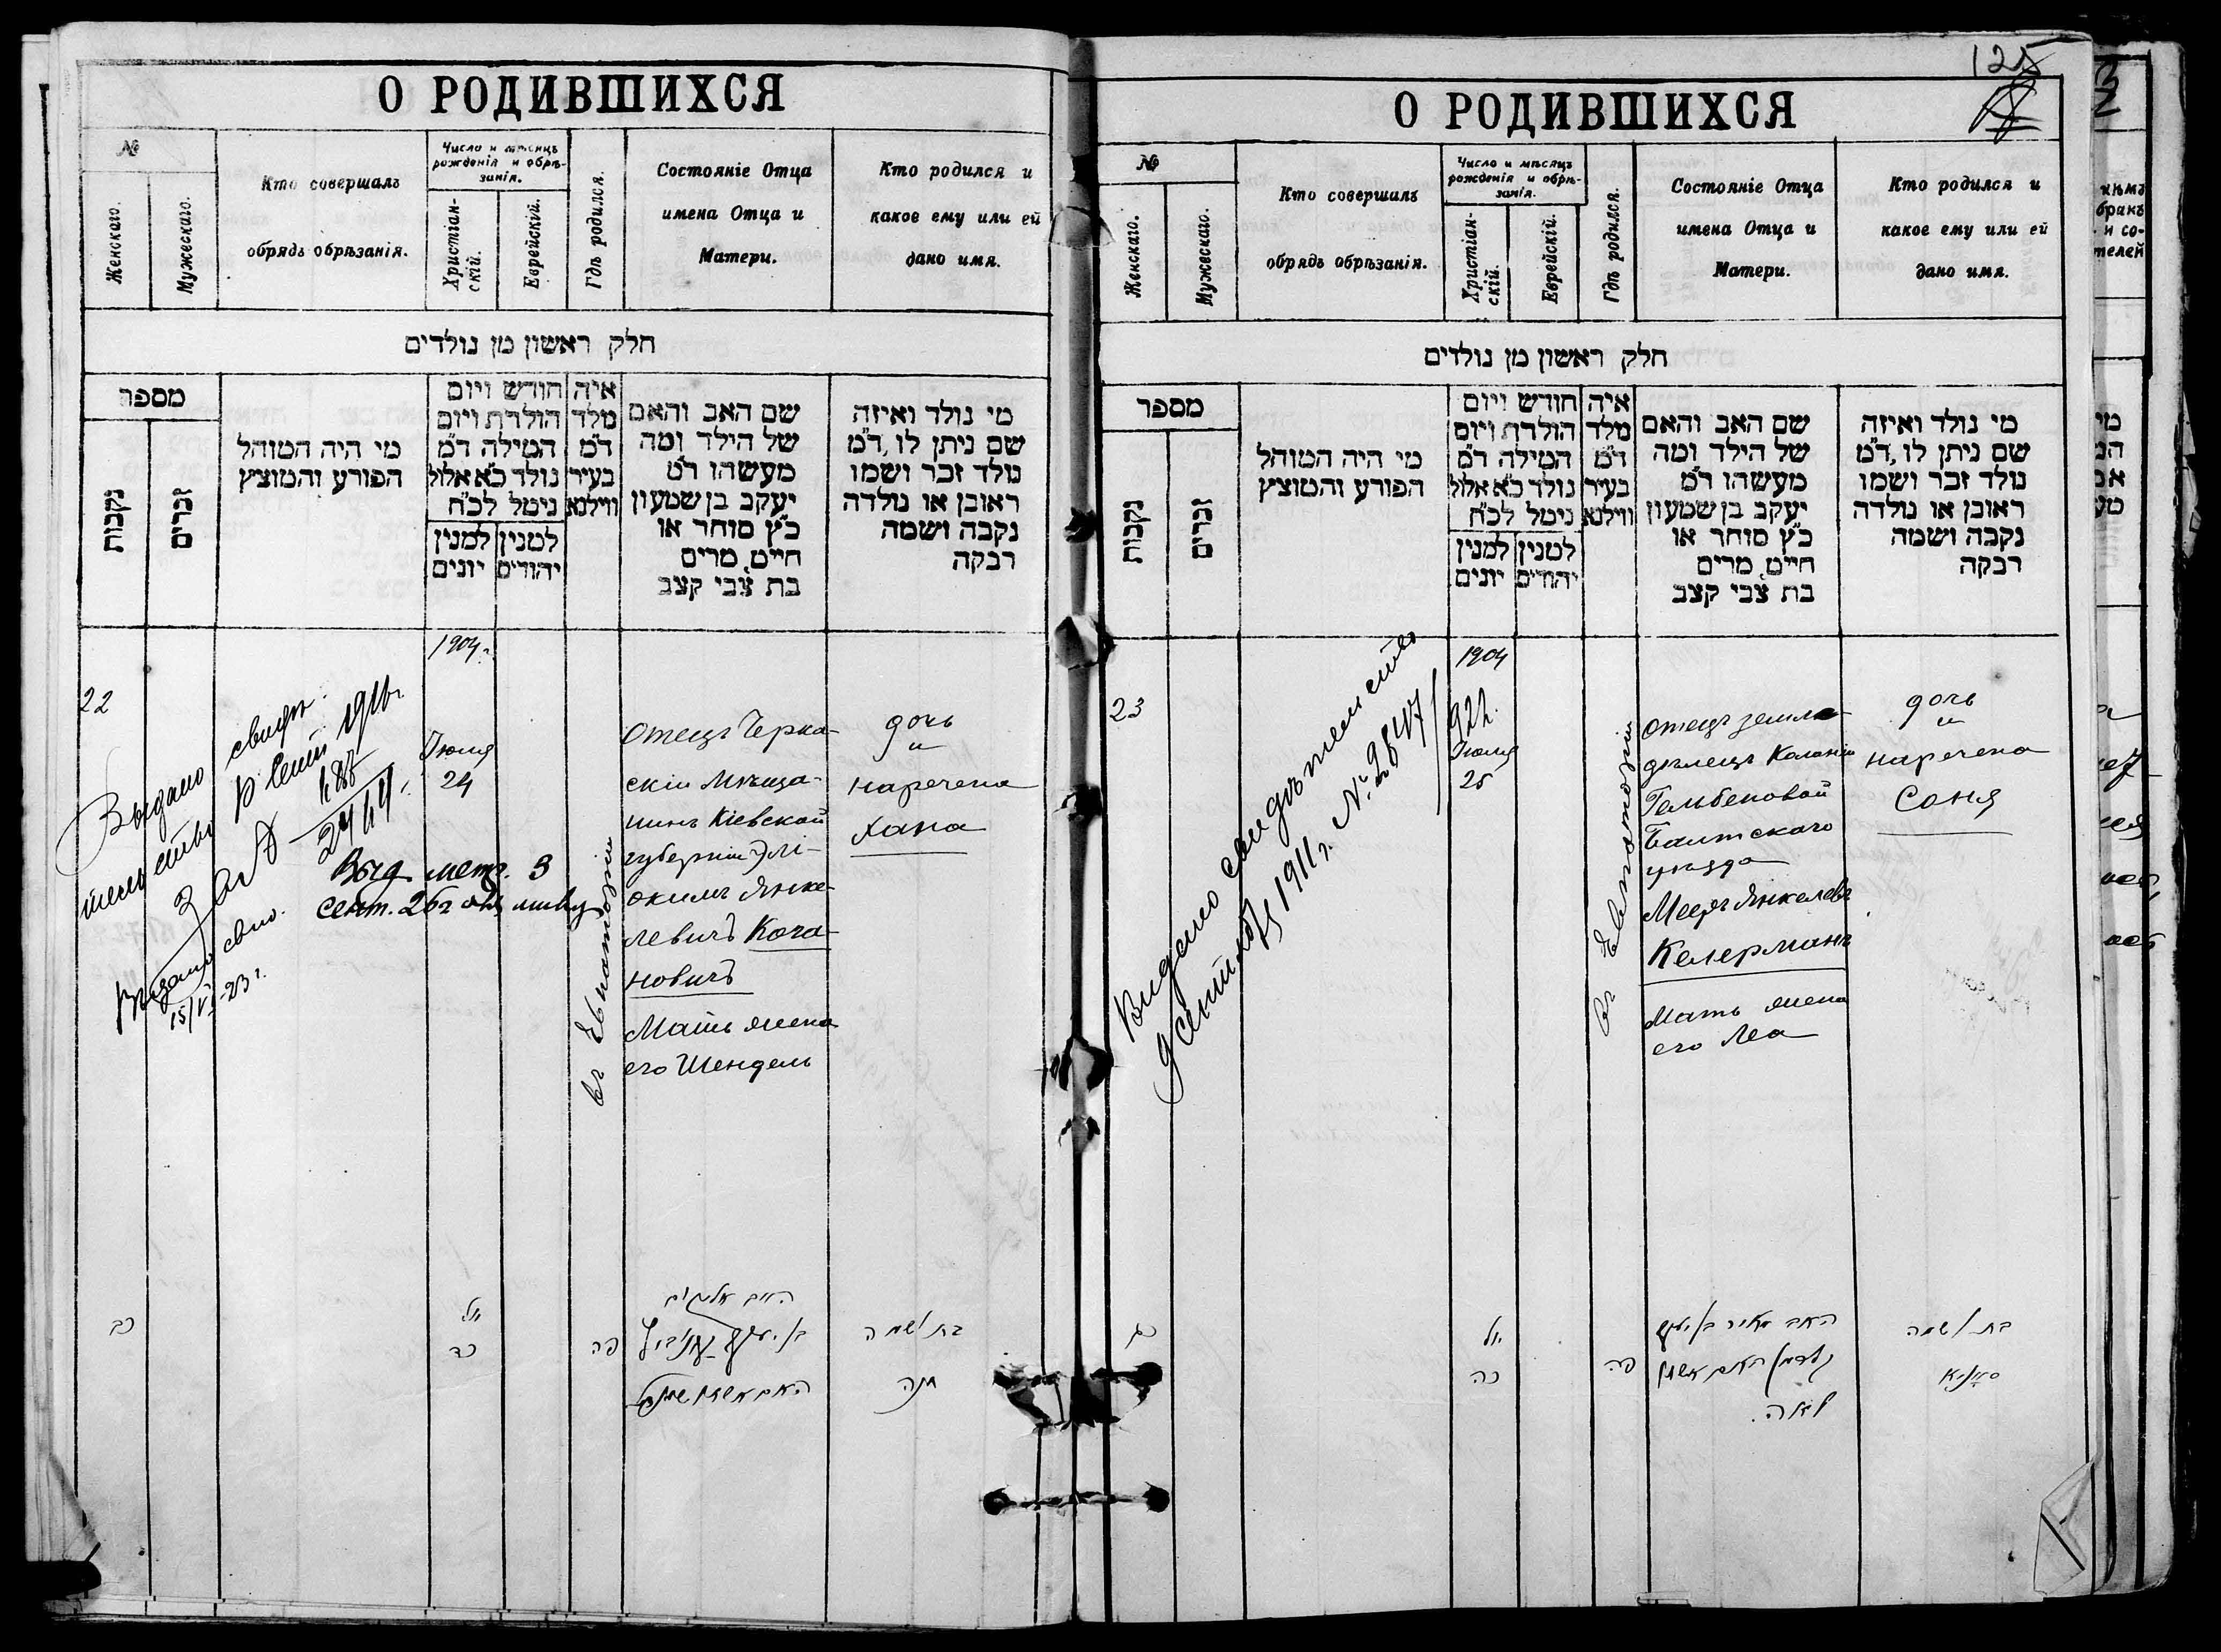 О РОДИВШИХСЯ
№
Женскаго.
Мужескаго.
Кто совершалъ
обрядъ обрѣзанія.
Число и мѣсяцъ
рожденія и обрѣ-
занія.
Христіан-
скій.
Еврейскій.
Гдѣ родился.
Состояніе Отца
имена Отца и
Матери.
Кто родился и
какое ему или ей
дано имя.
חלק ראשון מן נולדים
מספר
נקבות
זכרים
מי היה המוהל
הפורע והמוצץ
חודש ויום
הולדת ויום
המילה ד״מ
נולד כ״א אלול
נימל לכ״ח
למנין יהודים
למנין יונים
איה
מלד
ד״מ
בעיר
ווילנא
שם האב והאם
של הילד ומה
מעשהו ד״מ
יעקב בן שמעון
כ״ץ סוחר או
חייט, מרים
בת צבי קצב
מי נולד ואיזה
שם ניתן לו, ד״מ
נולד זכר ושמו
ראובן או נולדה
נקבה ושמה
רבקה
22
Выдано свидѣ-
тельство
Сент 1916 г.
Выд. метр. 3
сент. 26 г.
Выдано свид.
15/VI-23 г.
1904 г.
Іюля
24
въ Евпаторіи
Отецъ Черка-
скій Мѣща-
нинъ Кіевской
губерніи Элі-
окимъ Янке-
левичъ Кога-
новичъ
Мать жена
его Шендель
дочь
и
наречена
Хана
כב
יול
כד
פה
בת ושמה
חנה
125
О РОДИВШИХСЯ
№
Женскаго.
Мужескаго.
Кто совершалъ
обрядъ обрѣзанія.
Число и мѣсяцъ
рожденія и обрѣ-
занія.
Христіан-
скій.
Еврейскій.
Гдѣ родился.
Состояніе Отца
имена Отца и
Матери.
Кто родился и
какое ему или ей
дано имя.
חלק ראשון מן נולדים
מספר
נקבות
זכרים
מי היה המוהל
הפורע והמוצץ
חודש ויום
הולדת ויום
המילה ד״מ
נולד כ״א אלול
נימל לכ״ח
למנין יהודים
למנין יונים
איה
מלד
ד״מ
בעיר
ווילנא
שם האב והאם
של הילד ומה
מעשהו ד״מ
יעקב בן שמעון
כ״ץ סוחר או
חייט, מרים
בת צבי קצב
מי נולד ואיזה
שם ניתן לו, ד״מ
נולד זכר ושמו
ראובן או נולדה
נקבה ושמה
רבקה
23
Выдано свидѣтельство
9 Сентября 1911 г. №
1904
Іюля
25
въ Евпаторіи
Отецъ земле-
дѣлецъ Колоніи
Гельбеновой
Балтскаго
уѣзда
Мееръ Янкелевъ
Келерманъ
Мать жена
его Леа
дочь
и
наречена
Соня
כג
יול
כה
פה
האב מאיר בן יעקב
קעלערמאן האם אשתו
לאה.
בת ושמה
סוניא